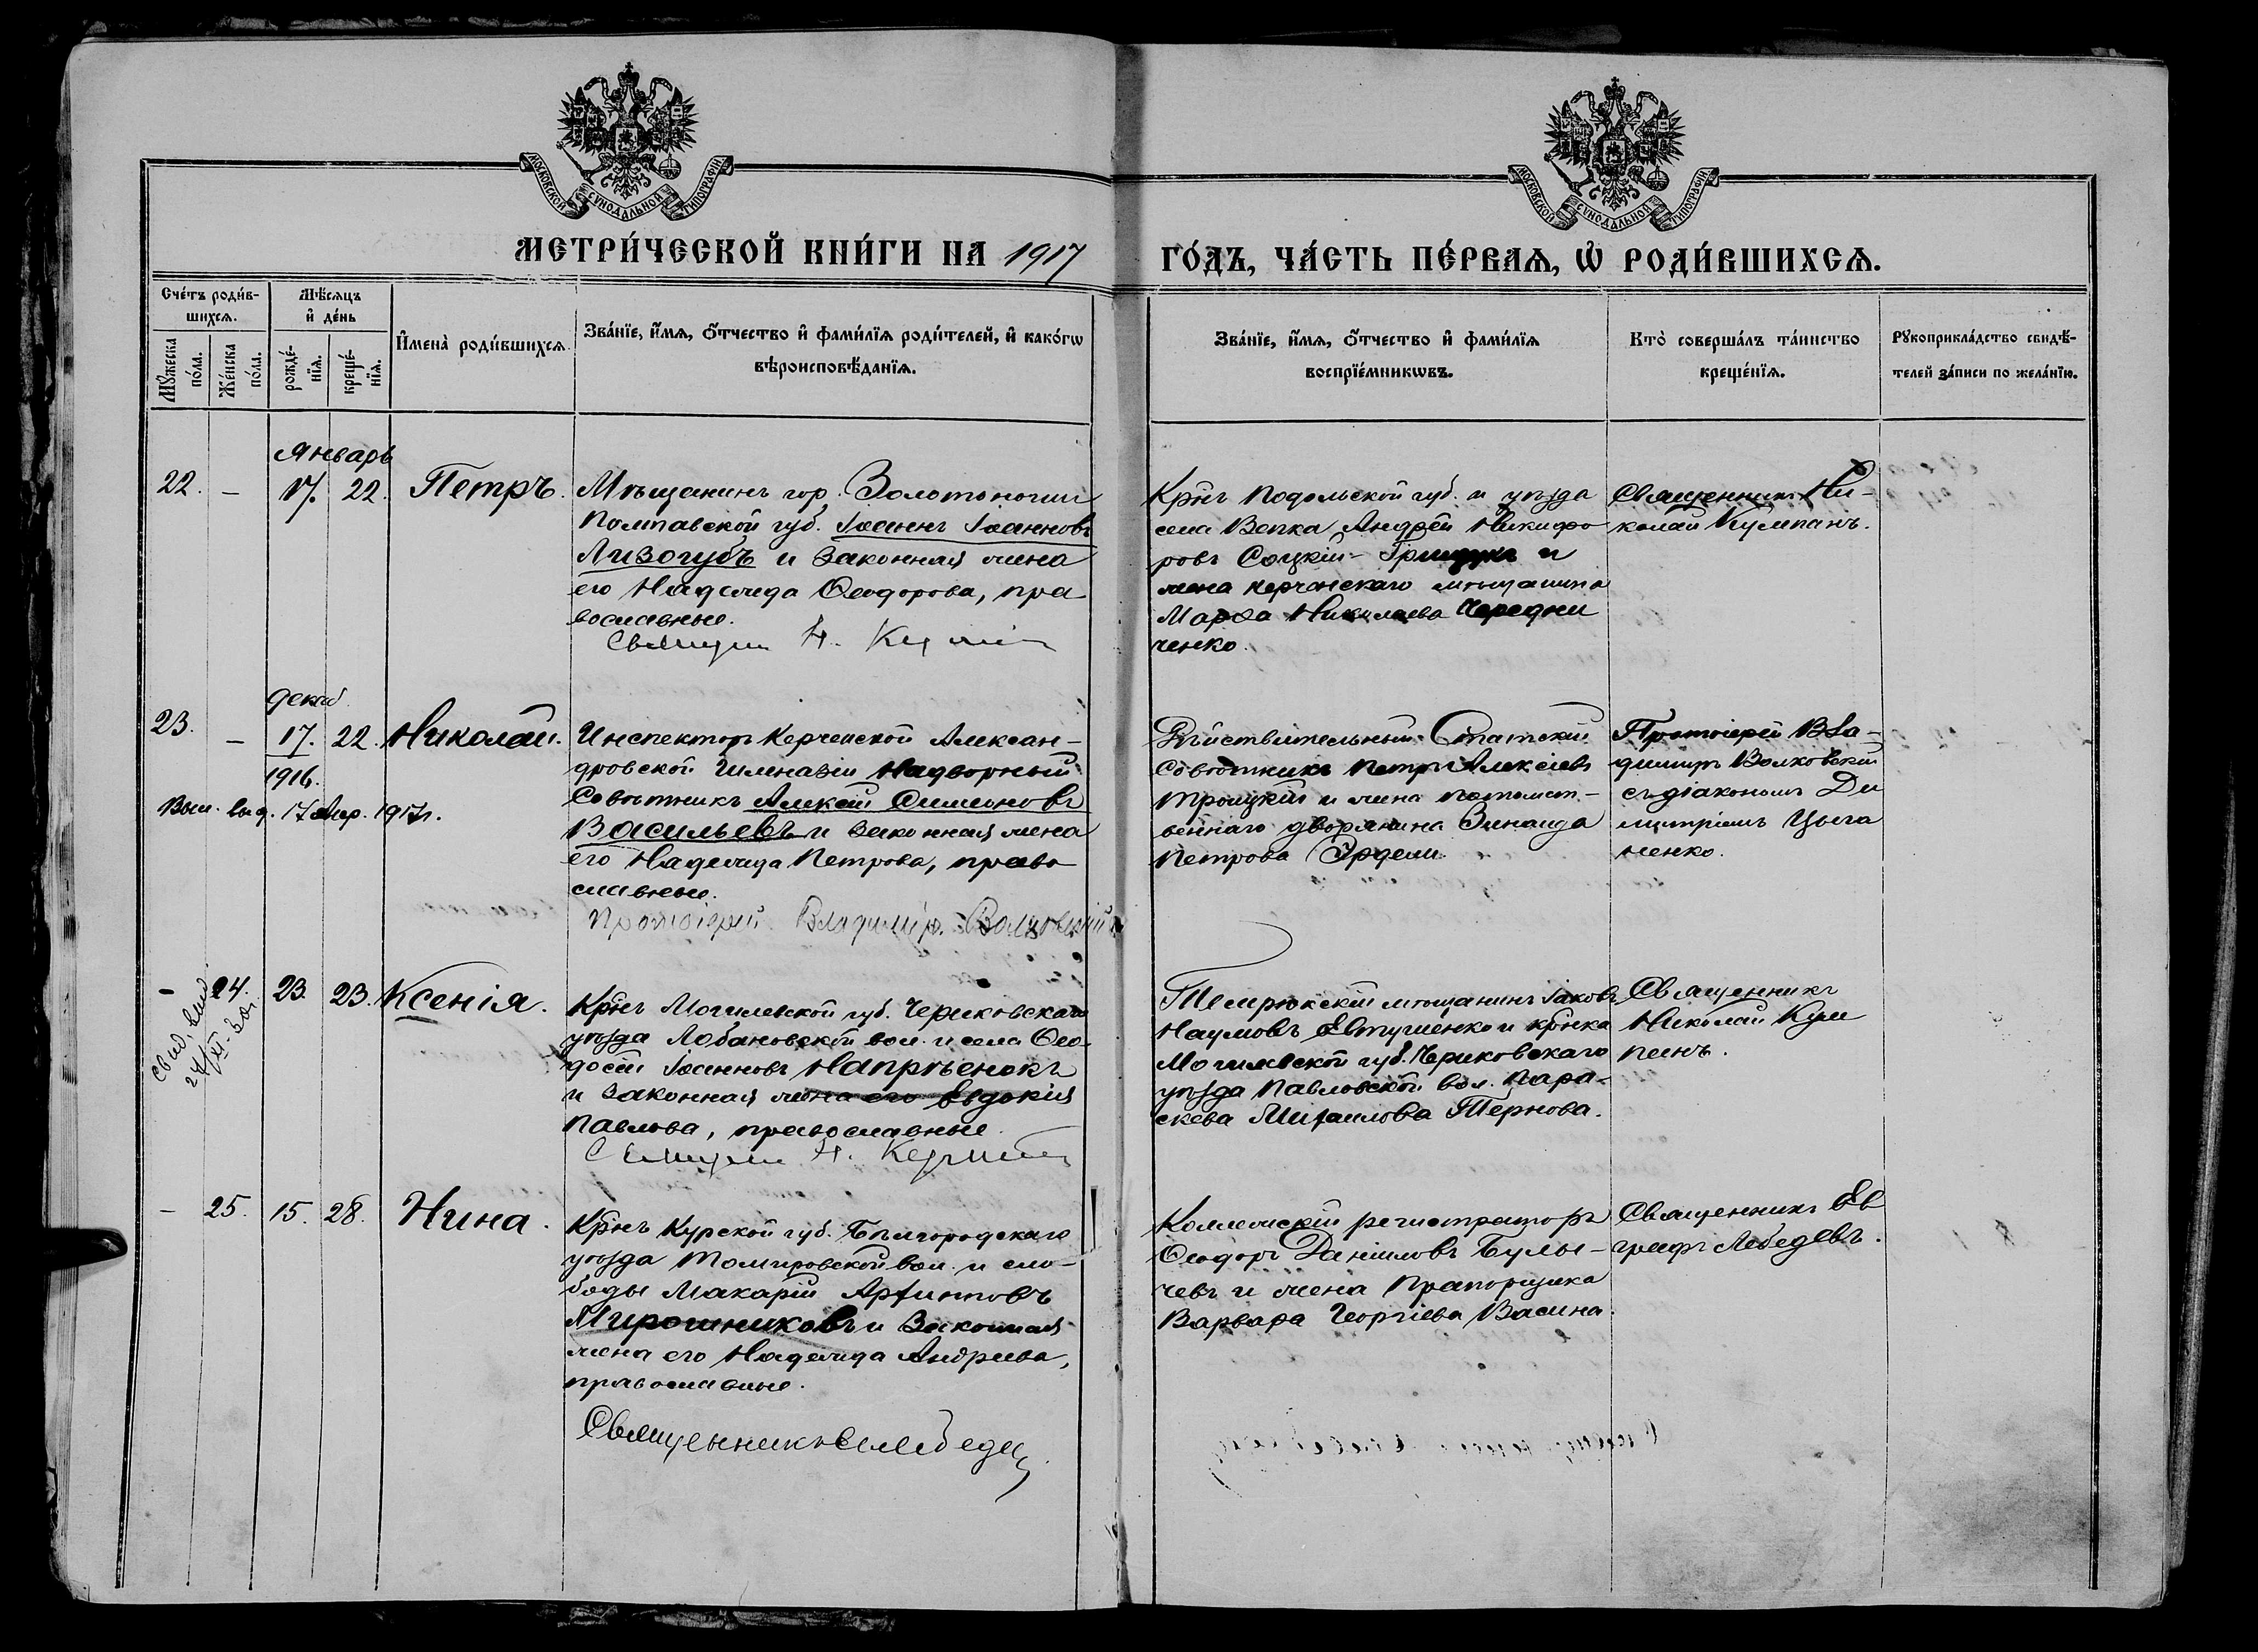 МОСКОВСКОЙ СѴНОДАЛЬНОЙ ТИПОГРАФІИ
МОСКОВСКОЙ СѴНОДАЛЬНОЙ ТИПОГРАФІИ
МЕТРИ́ЧЕСКОЙ КНИ́ГИ НА 1917 ГО́ДЪ, ЧА́СТЬ ПЕ́РВАѦ, Ѡ РОДИ́ВШИХСѦ.
Сче́тъ роди́в-
шихсѧ.
Мꙋ́жеска по́ла.
Же́нска по́ла.
Мѣ́сѧцъ
и҆ де́нь
рожде́-
нїѧ.
креще́-
нїѧ.
И҆мена̀ роди́вшихсѧ.
Зва́нїе, и҆́мѧ, ѻ҆́тчество и҆ фами́лїѧ роди́телей, и҆ како́гѡ
вѣроисповѣ́данїѧ.
Зва́нїе, и҆́мѧ, ѻ҆́тчество и҆ фами́лїѧ
воспрїе́мникѡвъ.
Кто̀ соверша́лъ та́инство
креще́нїѧ.
Рꙋкоприкла́дство свидѣ́-
телей за́писи по жела́нїю.
Январь
22. – 17. 22. Петръ.
Мѣщанинъ гор. Золотоноши
Полтавской губ. Іоаннъ Іоанновъ
Лизогубъ и законная жена
его Надежда Ѳеодорова, пра
вославные.
Священ Н. Кум
Крнъ Подольской губ. и уѣзда
села Вепка Андрей Никифо
ровъ Соцкій-Грищукъ и
жена керченскаго мѣщанина
Марѳа Николаева Чередни
ченко.
Священникъ Ни-
колай Кумпанъ.
декаб
23. – 17. 22. Николай.
1916.
Вып. выд. 17 Апр. 1917 г.
Инспекторъ Керченской Алексан-
дровской Гимназіи Надворный
Совѣтникъ Алексій Симеоновъ
Васильевъ и законная жена
его Надежда Петрова, право
славные.
Протоіерей Владиміръ Волковскій
Дѣйствительный Статскій
Совѣтникъ Петръ Алексіевъ
Троицкій и жена потомст-
веннаго дворянина Зинаида
Петрова Эрдели.
Протоіерей Вла-
диміръ Волковскій
съ діакономъ Ди
митріемъ Цыга
ненко.
– 24. 23. 23. Ксенія.
Свид. выд.
Крнъ Могилевской губ. Чериковскаго
уѣзда Лобановской вол. и села Ѳео-
досій Іоанновъ Напрѣенокъ
и законная жена его Евдокія
Павлова, православные.
Священ Н. Кум
Темрюкскій мѣщанинъ Іаковъ
Наумовъ Евтушенко и крнка
Могилевской губ. Чериковскаго
уѣзда Павловской вол. Пара-
скева Михаилова Тернова.
Священникъ
Николай Кум
панъ.
– 25. 15. 28. Нина.
Крнъ Курской губ. Бѣлгородскаго
уѣзда Томаровской вол. и сло-
боды Макарій Архиповъ
Мирошниковъ и законная
жена его Надежда Андреева,
православные.
Священникъ Е Лебедев
Коллежскій регистраторъ
Ѳеодоръ Даніиловъ Булы-
чевъ и жена Прапорщика
Варвара Георгіева Васина.
Священникъ Ев
графъ Лебедевъ.